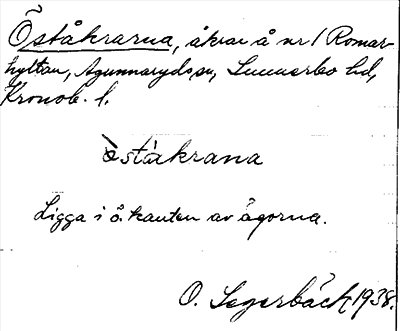 Öståkrarna, åkrar å nr 1 Romar-
hyltan, Agunnaryds sn, Sunnerbo hd,
Kronob. l.
òståkrana
Ligga i ö. kanten av ägorna.
O. Segerbäck 1938.